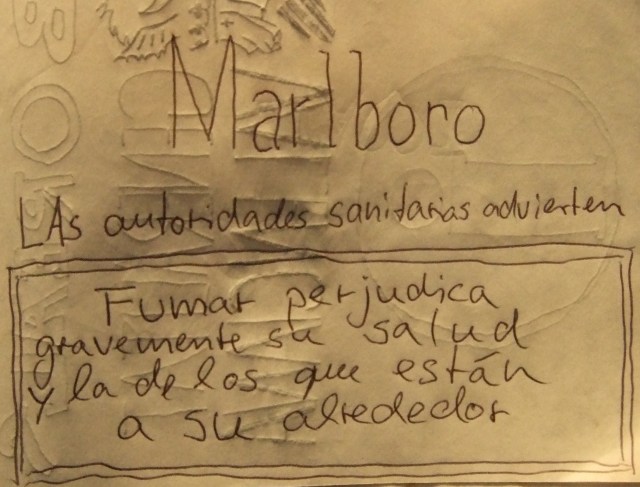 Marlboro
LAs autoridades sanitarias advierten
Fumar perjudica
gravemente su salud
y la de los que están
a su alrededor